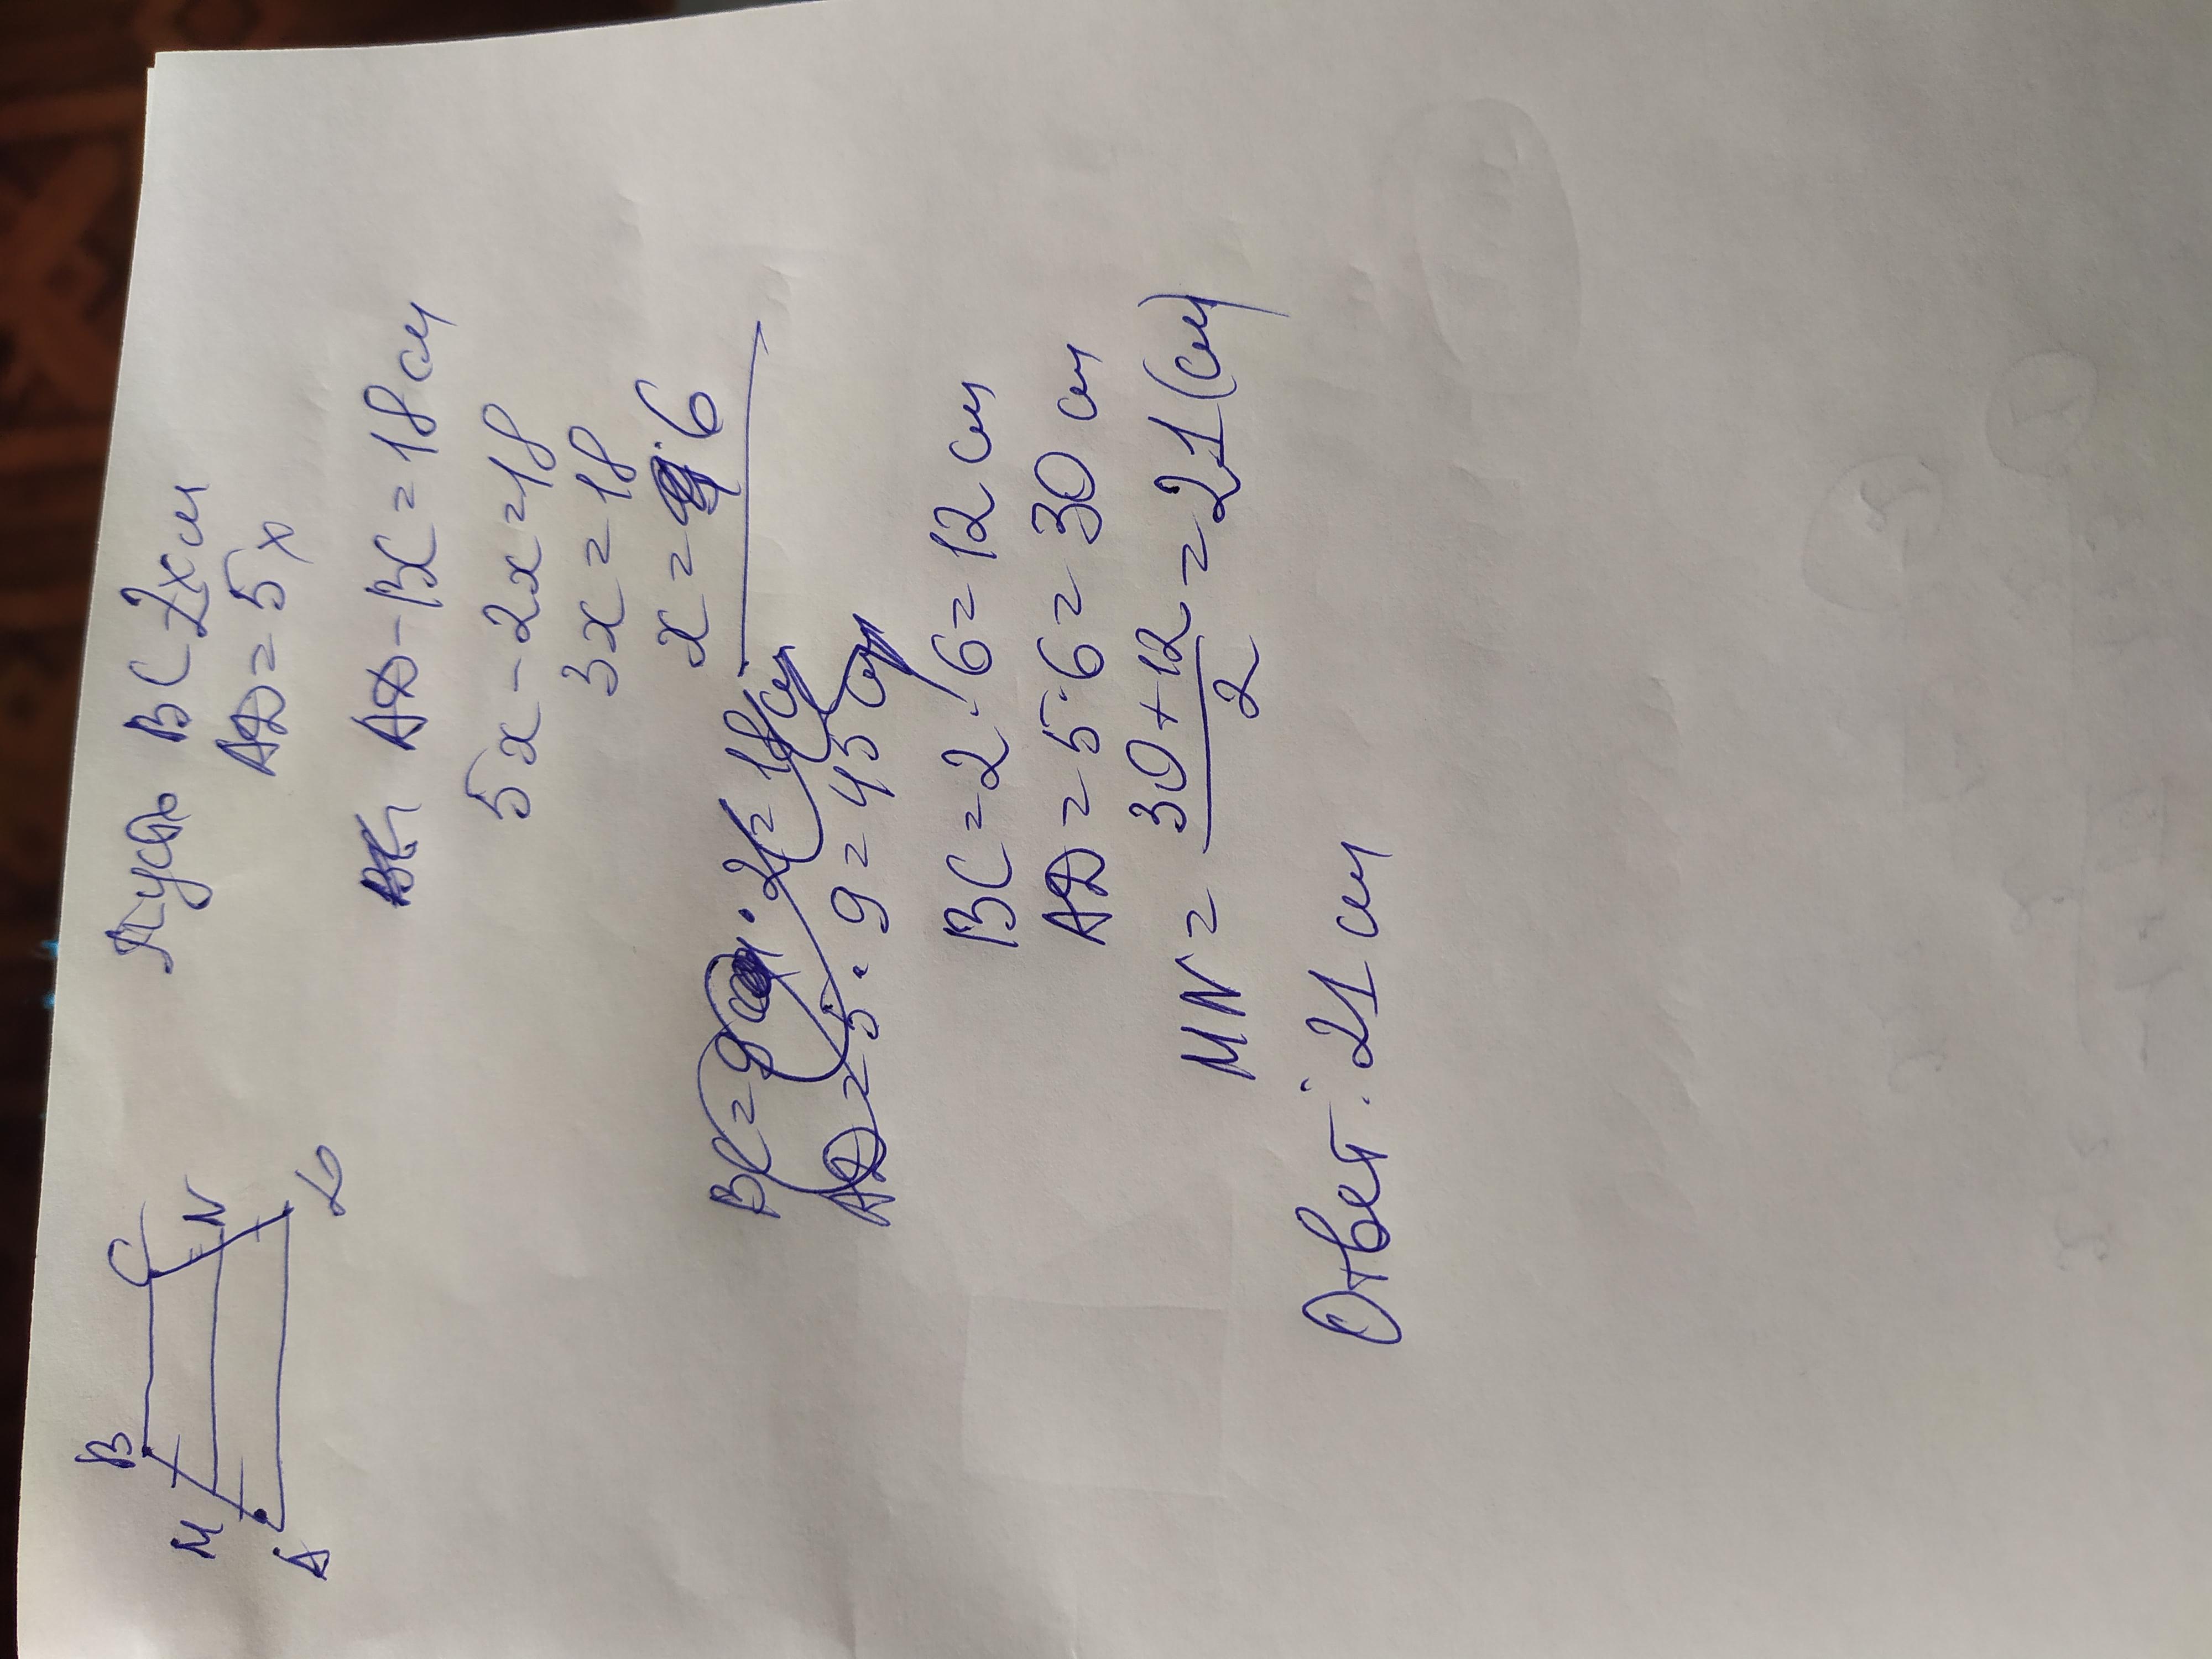 B C
M N
A D
Пусть BC 2x см
AD = 5x
AD - BC = 18 см
5x - 2x = 18
3x = 18
x = 6
BC = 9 · 2 = 18 см
AD = 5 · 9 = 45 см
BC = 2 · 6 = 12 см
AD = 5 · 6 = 30 см
MN = 30 + 12 / 2 = 21 (см)
Ответ: 21 см